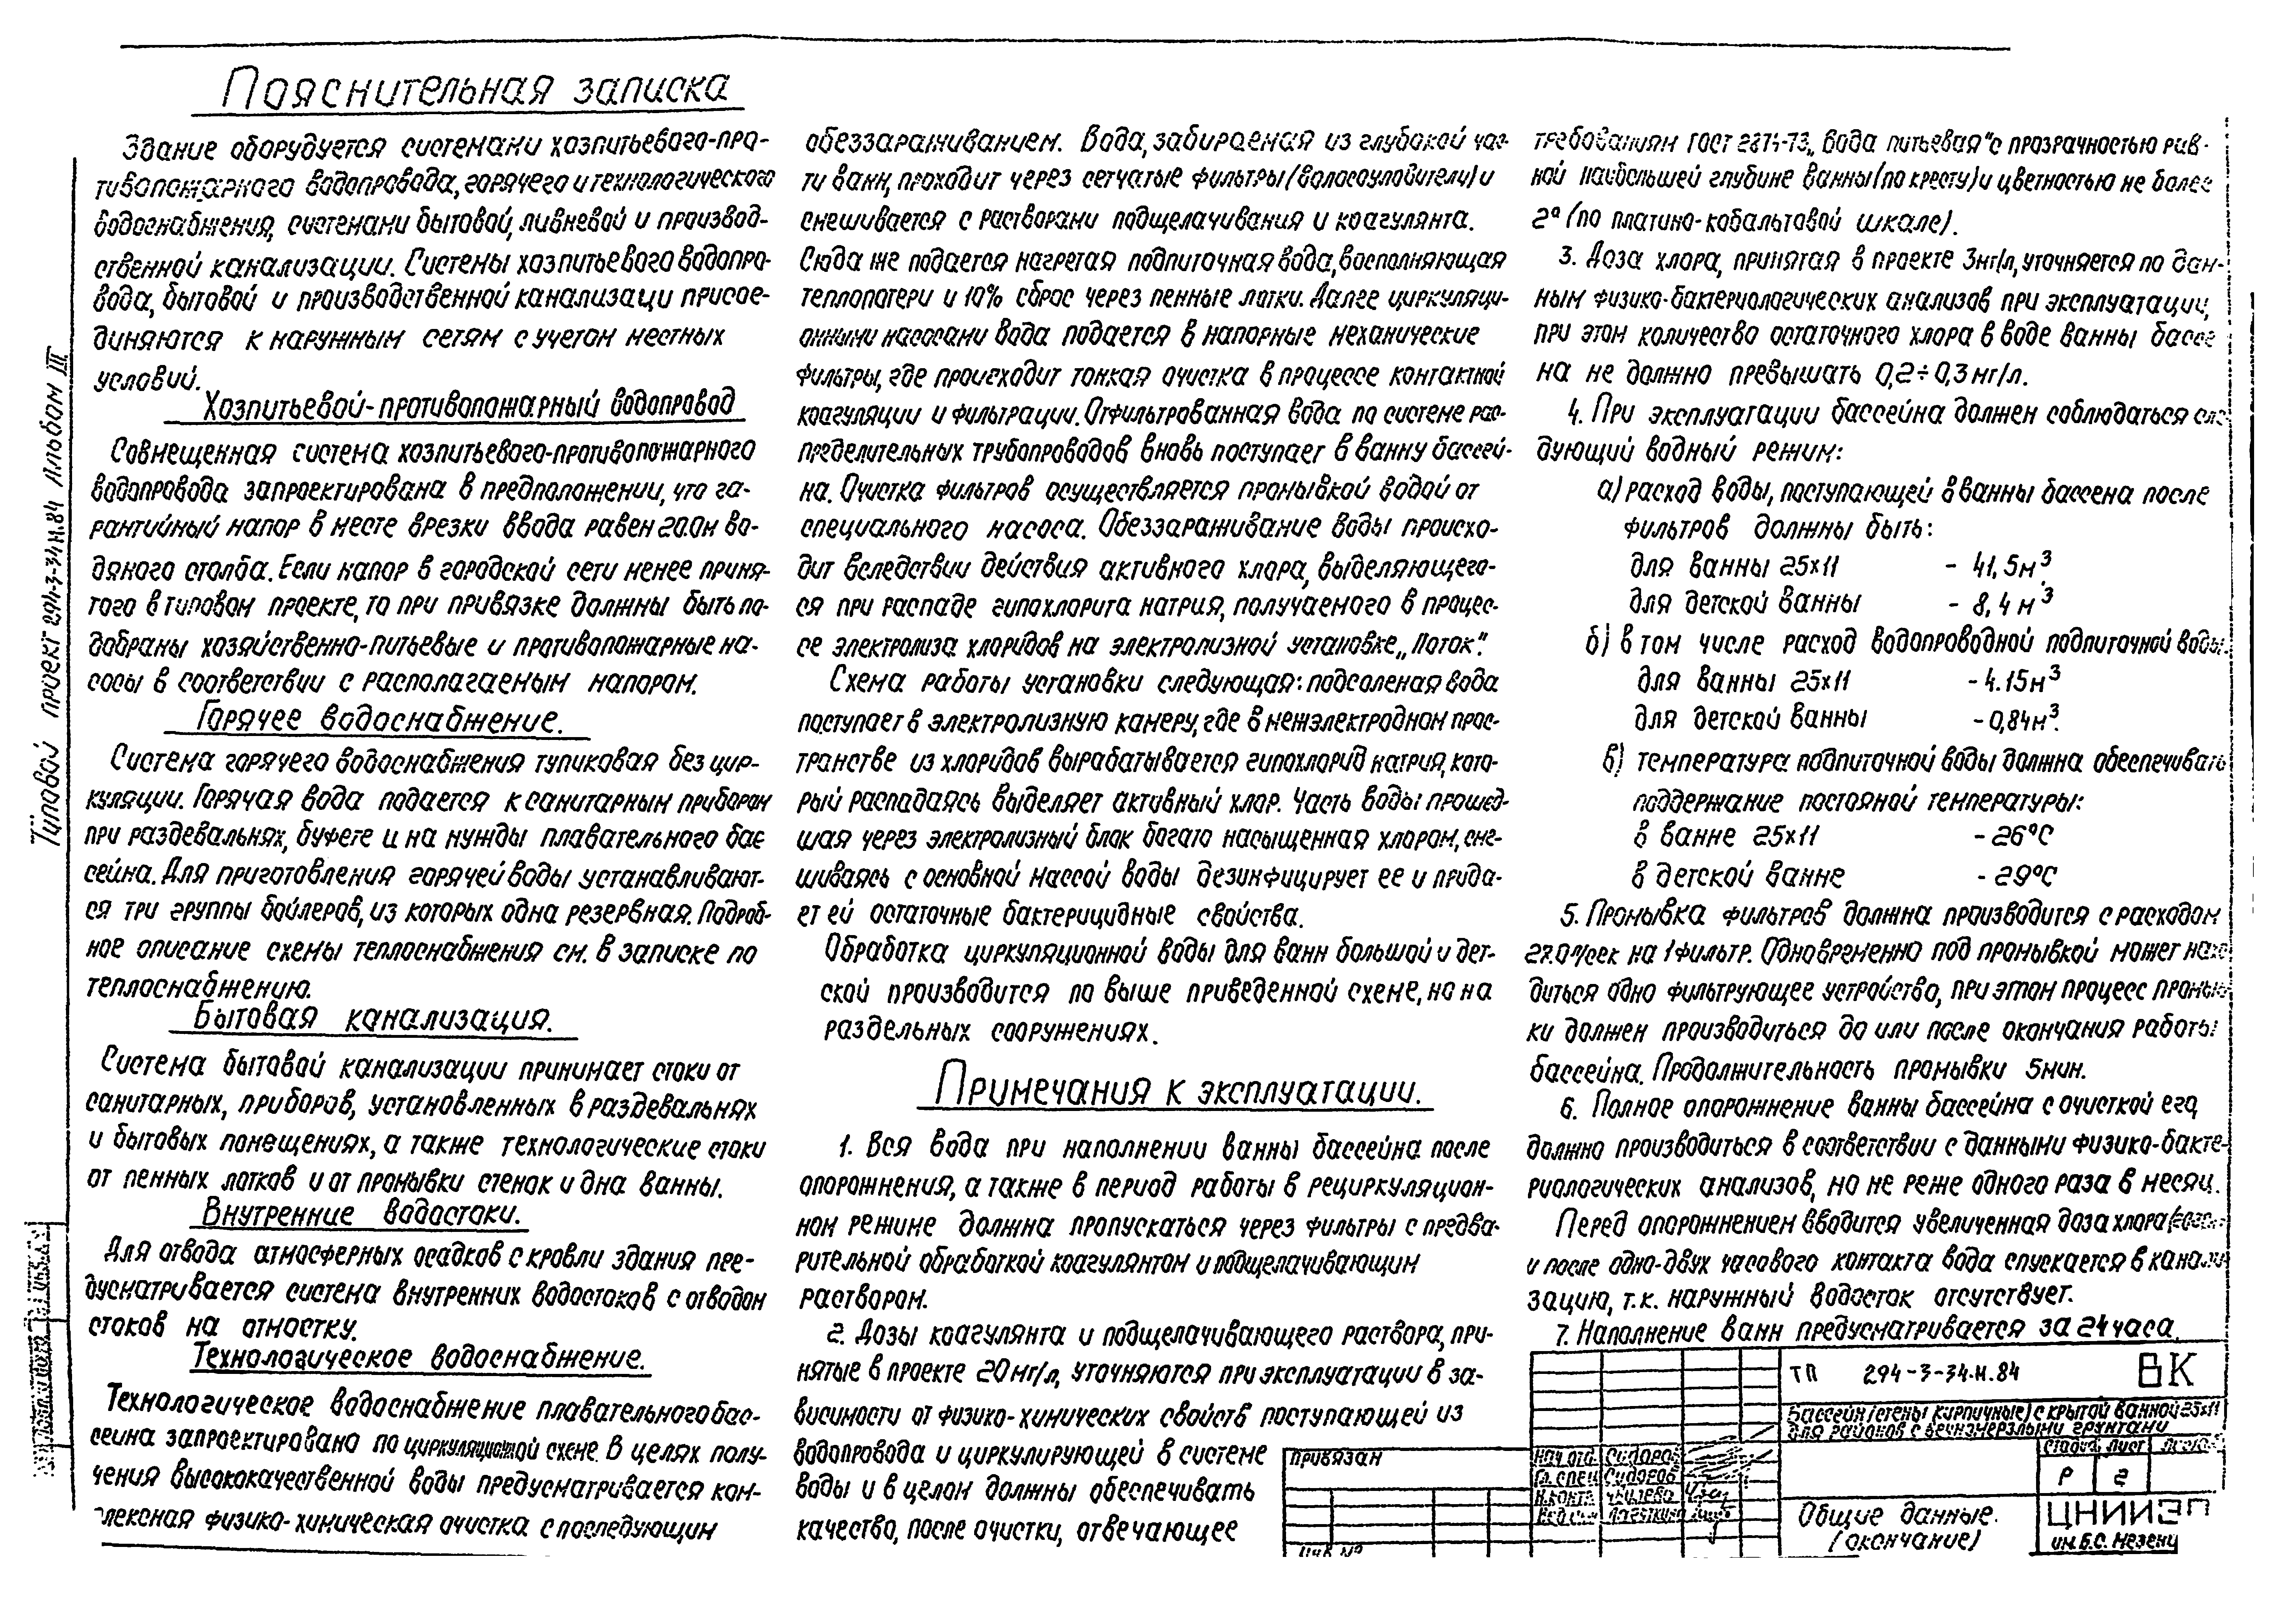 Пояснительная записка
Здание оборудуется системами хозпитьевого-про-
тивопожарного водопровода, горячего и технологического
водоснабжения, системами бытовой, ливневой и производ-
ственной канализации. Системы хозпитьевого водопро-
вода, бытовой и производственной канализаци присое-
диняются к наружным сетям с учетом местных
условий.
Хозпитьевой-противопожарный водопровод
Совмещенная система хозпитьевого-противопожарного
водопровода запроектирована в предположении, что га-
рантийный напор в месте врезки ввода равен 20.0м во-
дяного столба. Если напор в городской сети менее приня-
того в типовом проекте, то при привязке должны быть по-
добраны хозяйственно-питьевые и противопожарные на-
сосы в соответствии с располагаемым напором.
Горячее водоснабжение.
Система горячего водоснабжения тупиковая без цир-
куляции. Горячая вода подается к санитарным приборам
при раздевальнях, буфете и на нужды плавательного бас
сейна. Для приготовления горячей воды устанавливают-
ся три группы бойлеров, из которых одна резервная. Подроб-
ное описание схемы теплоснабжения см. в записке по
теплоснабжению.
Бытовая канализация.
Система бытовой канализации принимает стоки от
санитарных, приборов, установленных в раздевальнях
и бытовых помещениях, а также технологические стоки
от пенных лотков и от промывки стенок и дна ванны.
Внутренние водостоки.
Для отвода атмосферных осадков с кровли здания пре-
дусматривается система внутренних водостоков с отводом
стоков на отмостку.
Технологическое водоснабжение.
Технологическое водоснабжение плавательного бас-
сеина запроектировано по циркуляционной схеме. В целях полу-
чения высококачественной воды предусматривается ком-
лексная физико-химическая очистка с последующим
обеззараживанием. Вода, забираемая из глубокой час-
ти ванн, проходит через сетчатые фильтры (волосоуловители) и
смешивается с растворами подщелачивания и коагулянта.
Сюда же подается нагретая подпиточная вода, восполняющая
теплопотери и 10% сброс через пенные лотки. Далее циркуляци-
онными насосами вода подается в напорные механические
фильтры, где происходит тонкая очистка в процессе контактной
коагуляции и фильтрации. Отфильтрованная вода по системе рас-
пределительных трубопроводов вновь поступает в ванну бассей-
на. Очистка фильтров осуществляется промывкой водой от
специального насоса. Обеззараживание воды происхо-
дит вследствии действия активного хлора, выделяющего-
ся при распаде гипохлорита натрия, получаемого в процес-
се электролиза хлоридов на электролизной установке „Поток".
Схема работы установки следующая: подсоленая вода
поступает в электролизную камеру, где в межэлектродном прос-
транстве из хлоридов вырабатывается гипохлорид натрия, кото-
рый распадаясь выделяет активный хлор. Часть воды прошед-
шая через электролизный блок богато насыщенная хлором, сме-
шиваясь с основной массой воды дезинфицирует ее и прида-
ет ей остаточные бактерицидные свойства.
Обработка циркуляционной воды для ванн большой и дет-
ской производится по выше приведенной схеме, но на
раздельных сооружениях.
Примечания к эксплуатации.
1. Вся вода при наполнении ванны бассейна после
опорожнения, а также в период работы в рециркуляцион-
ном режиме должна пропускаться через фильтры с предва-
рительной обработкой коагулянтом и подщелачивающим
раствором.
2. Дозы коагулянта и подщелачивающего раствора, при-
нятые в проекте 20мг/л, уточняются при эксплуатации в за-
висимости от физико-химических свойств поступающей из
водопровода и циркулирующей в системе
воды и в целом должны обеспечивать
качество, после очистки, отвечающее
требованиям ГОСТ 2874-73 „Вода питьевая" с прозрачностью рав-
ной наибольшей глубине ванны (по кресту) и цветностью не более
2° (по платино-кобальтовой шкале).
3. Доза хлора, принятая в проекте 3мг/л, уточняется по дан-
ным физико-бактериологических анализов при эксплуатации,
при этом количество остаточного хлора в воде ванны бассе
на не должно превышать 0,2÷0,3мг/л.
4. При эксплуатации бассейна должен соблюдаться сле
дующий водный режим:
а) расход воды, поступающей в ванны бассена после
фильтров должны быть:
для ванны 25х11 - 41,5м³
для детской ванны - 8,4м³
б) в том числе расход водопроводной подпиточной воды.
для ванны 25х11 - 4.15м³
для детской ванны - 0,84м³.
в) температура подпиточной воды должна обеспечивать
поддержание постояной температуры:
в ванне 25х11 - 26°С
в детской ванне - 29°С
5. Промывка фильтров должна производится с расходом
27.0л/сек на 1фильтр. Одновременно под промывкой может нахо
диться одно фильтрующее устройство, при этом процесс промыв
ки должен производиться до или после окончания работы
бассейна. Продолжительность промывки 5мин.
6. Полное опорожнение ванны бассейна с очисткой его,
должно производиться в соответствии с данными физико-бакте-
риологических анализов, но не реже одного раза в месяц.
Перед опорожнением вводится увеличенная доза хлора
и после одно-двух часового контакта вода спускается в канали
зацию, т.к. наружный водосток отсутствует.
7. Наполнение ванн предусматривается за 24 часа.
Типовой проект 294-3-34м.84 Альбом III
привязан
инв №
нач. отд. Сидоров
Гл. спец Сидоров
Н.контр
ТП 294-3-34.м.84 ВК
Бассейн (стены кирпичные) с крытой ванной 25х11
для районов с вечномерзлыми грунтами
стадия лист листов
Р 2
Общие данные.
(окончание)
ЦНИИЭП
им. Б.С. Мезенц